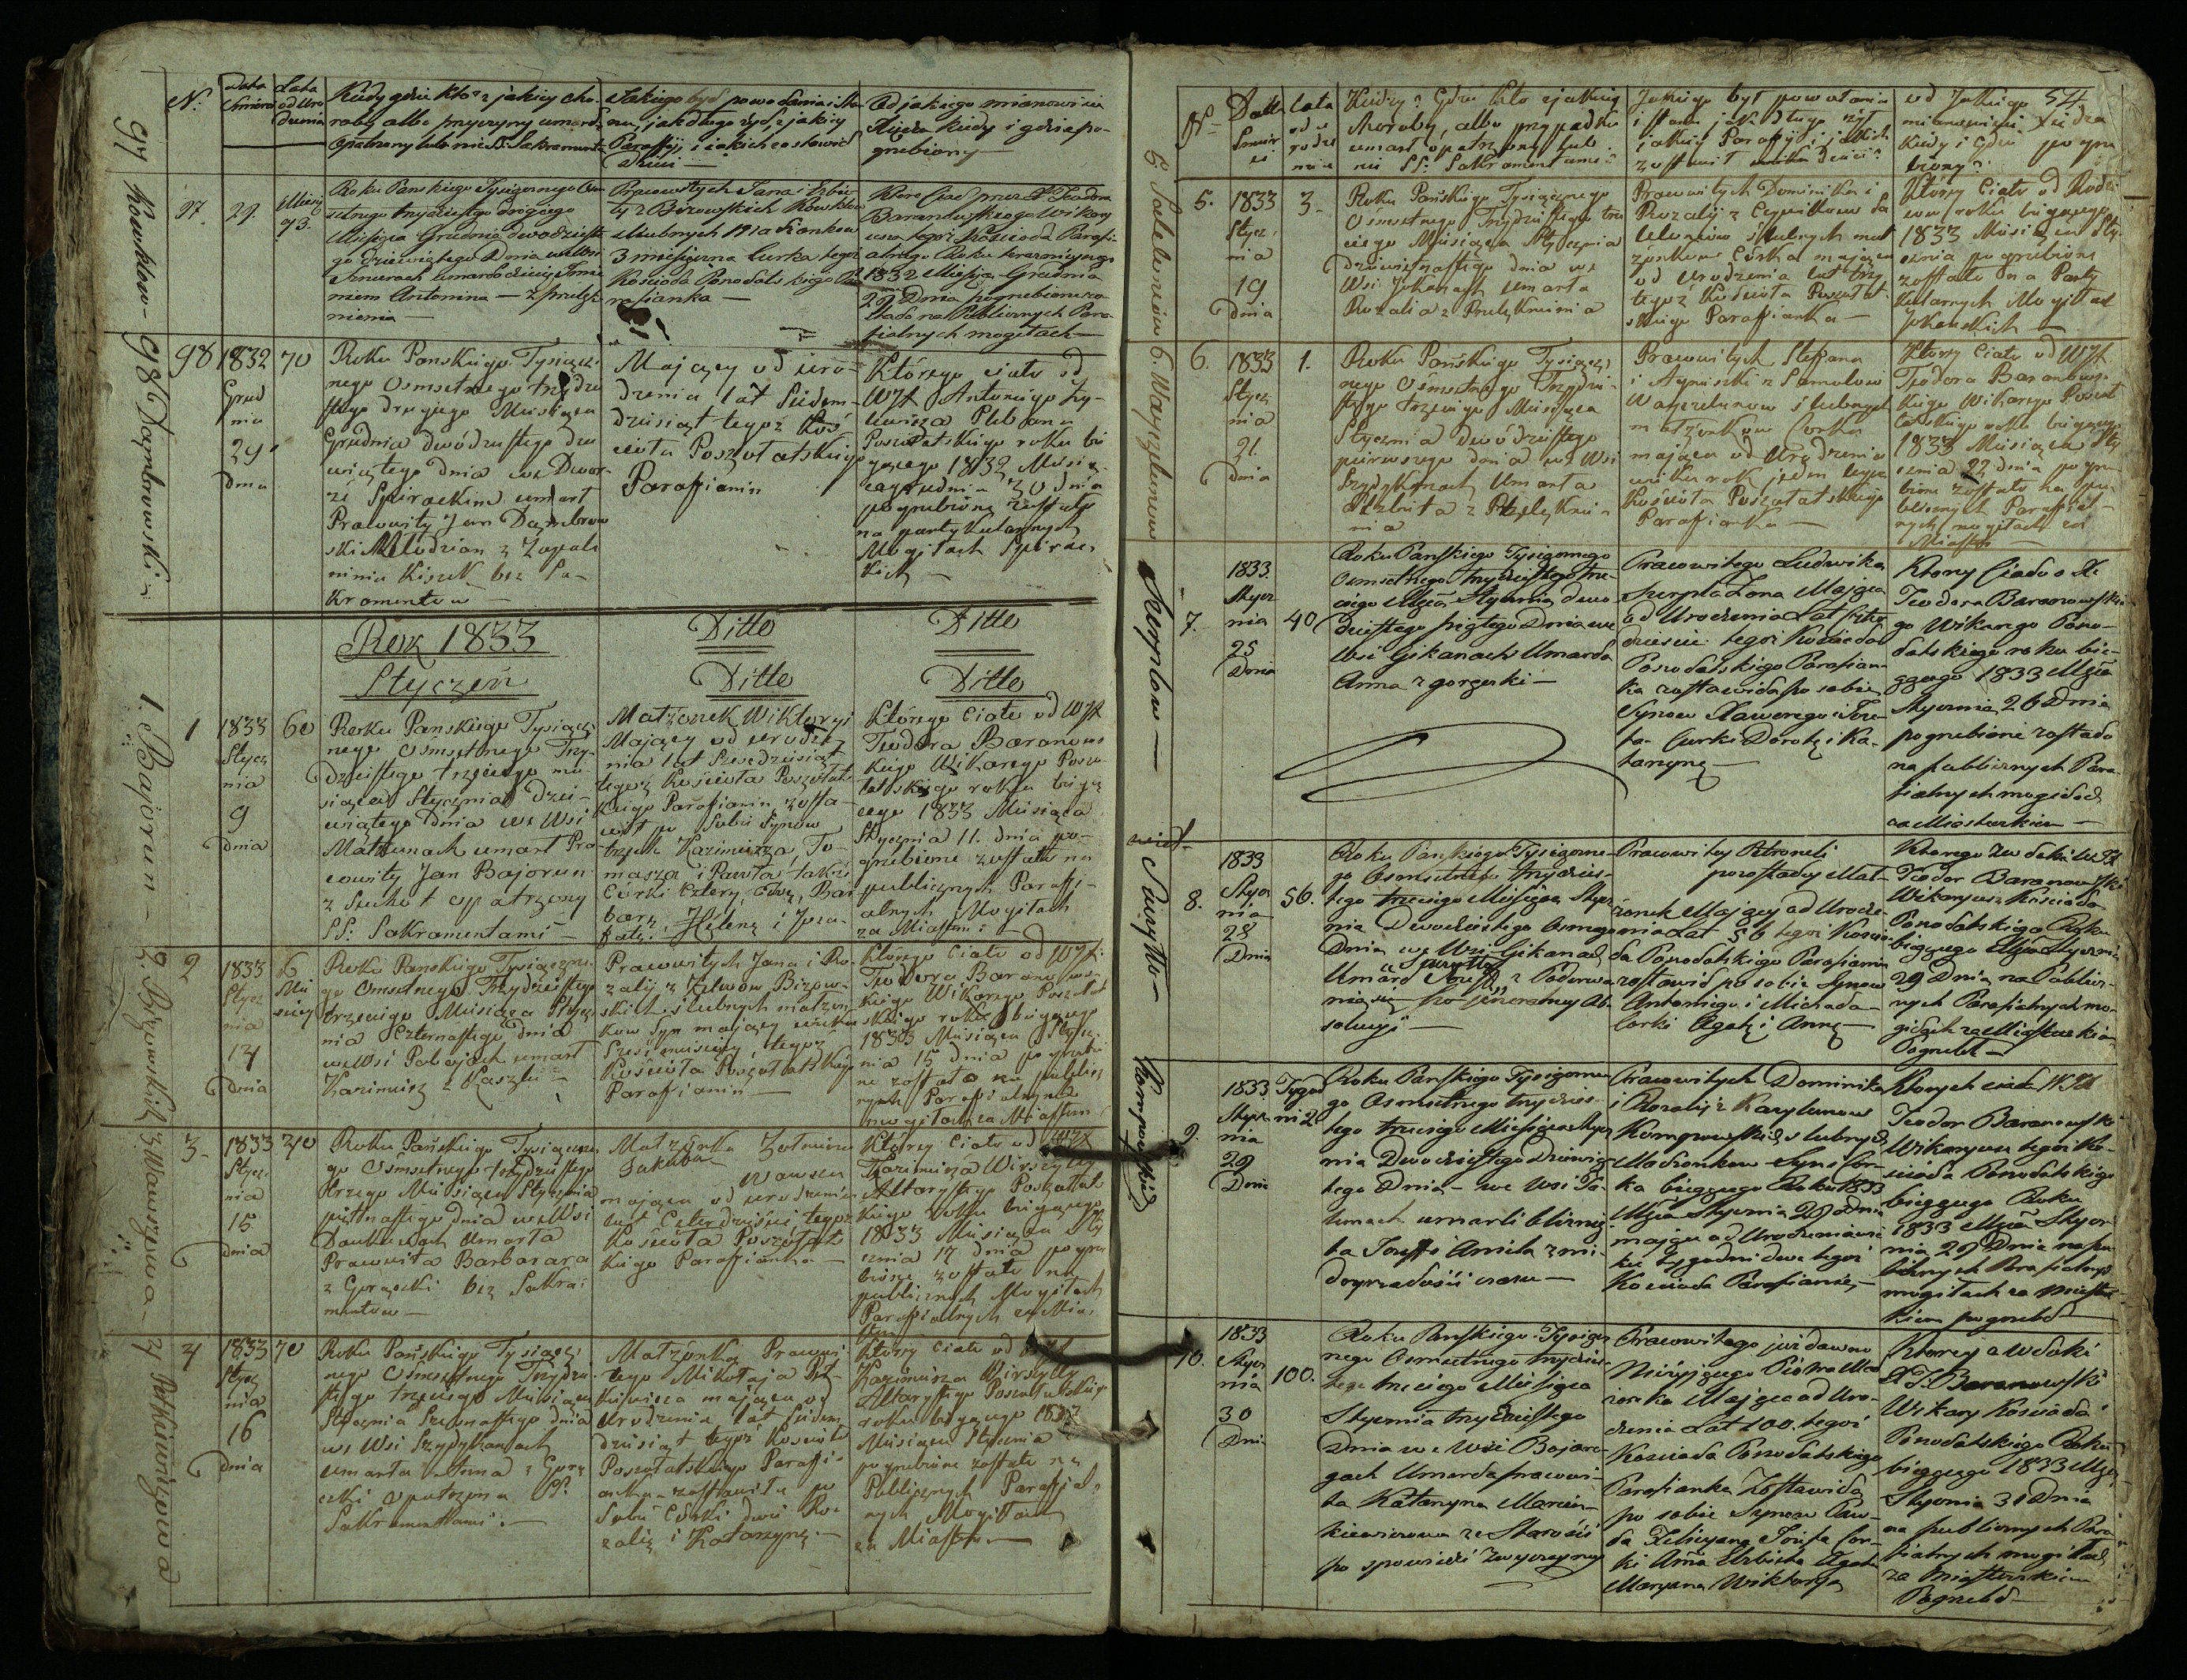 N:
Data
Śmierci
Lata
od Uro
dzenia
Kiedy gdzie kto z jakiey cho-
roby albo przyczyny umarł
opatrzony lub nie SS. Sakramentami
Jakiego był powołania i Sta
nu, jak długo żył, z jakiey
Paraffij, i jakich zostawił
Dzieci —
Od jakiego mianowicie
Xiędza kiedy i gdzie po-
grzebiony —
97 Kowklow — 98 Dąmbrowski —
97.
29.
Miesię
cy 3.
Roku Panskiego Tysiącznego Osm
setnego trzydziestego drugiego
Miesiąca Grudnia dwudzieste
go dziewiątego Dnia we Wsi
umarło dziecię Imie
niem Antonina — z przelęk
nienia —
Pracowitych Jana i Elżbie
ty z Birowskich
slubnych Małżonkow
3 miesięczna Curka tegoż
Kościoła Poszołatskiego Pa
rafianka —
Ktore Ciało przez X Teodora
Baranowskiego Wikary
usza tegoż Kościoła Parafi
alnego Roku teraznieyszego
1832 Miesiąca Grudnia
29 Dnia pogrzebione zo
stało na Publicznych Para
fialnych mogiłach —
98
1832
Grud
nia
29
dnia
70
Roku Panskiego Tysiącz
nego Osmsetnego trzydzie
stego drugiego Miesiąca
Grudnia dwódziestego dzie
wiątego dnia we Dwor
ze Spirackim umarł
Pracowity Jan Dąmbrow
ski Młodzian z Zapale
nienia Kiszek bez Sa-
kramentow —
Mający od uro-
dzenia lat Siedem-
dziesiąt tegoż Koś-
cioła Poszołatskiego
Parafianin
Którego ciało od
WJX Antoniego
Plebana
Poszołatskiego roku bie
żącego 1832 Miesią
ca grudnia 30 dnia
pogrzebione zostało
na partykularnych
Mogiłach Spirac
kich —
Rok 1833
Ditto
Ditto
Styczeń
Ditto
Ditto
1. Bajorun — 2. Birowskich 3. Wawrzowa — 4 Petkiewiczowa
1
1833
Stycz
nia
9
dnia
60
Roku Panskiego Tysiącz
nego Osmsetnego Trzy-
dziestego trzeciego mie-
siąca Stycznia Dzie-
wiątego Dnia we Wsi
Matunach umarł Pra
cowity Jan Bajorun
z Suchot opatrzony
SS: Sakramentami —
Małżonek Wiktoryi
Mający od urodze
nia lat Sześdziesiąt
tegoż Kościoła Poszołats
kiego Parafianin zosta-
wił po Sobie Synow
trzech Kazimierza, To-
masza i Pawła, także
Córki cztery, Ewę, Bar
barę, Helenę i Joza-
fatę.
Którego Ciało od WJX
Teodora Baranows
kiego Wikarego Poszo-
łatskiego roku bieżą
cego 1833 Miesiąca
Stycznia 11. dnia po-
grzebione zostało na
publicznych Paraffi-
alnych Mogiłach
za Miastem: —
2
1833
Stycz
nia
14
dnia
6
Mie
sięcy
Roku Panskiego Tysiączne
go Osmsetnego Trzydziestego
trzeciego Miesiąca Stycz
nia Czternastego dnia
we Wsi umarł
Kazimierz z Kaszlu —
Pracowitych Jana i Ro-
zalij z Birow-
skich slubnych małżon
kow Syn mający wieku
Sześć miesięcy, tegoż
Kościoła Poszołatskiego
Parafianin —
Którego Ciało od WJX:
Teodora Baranows-
kiego Wikarego Poszołat
skiego roku bieżącego
1833 Miesiąca Stycz-
nia 15 dnia pogrzebio
ne zostało na public
znych Parafialnych
mogiłach za Miastem
3.
1833
Stycz
nia
15
dnia
40
Roku Pańskiego Tysiączne
go Osmsetnego trzydziestego
trzeciego Miesiąca Stycznia
piętnastego dnia we Wsi
umarła
Pracowita Barbarara
z Gorączki bez Sakra
mentow —
Małżonka Żołnierza
Jakuba
Wawsza
mająca od urodzenia
lat Czterdzieści tegoż
Kościoła Poszołats
kiego Parafianka —
Którey Ciało od WJX
Kazimierza Wirszyłły
Altarystego Poszołats
kiego roku bieżącego
1833 Miesiąca Sty
cznia 17 dnia pogrze
bione zostało na
publicznych Mogiłach
Parafialnych za Mias
tem
4
1833
Stycz
nia
16
dnia
70
Roku Pańskiego Tysiącz
nego Osmsetnego Trzydzie
stego trzeciego Miesiąca
Stycznia Szesnastego dnia
we Wsi Szydyszkach
umarła Anna z Gorą
czki opatrzona SS:
Sakramentami. —
Małżonka Pracowi
tego Mikołaja Pet
kiewicza mająca od
urodzenia lat Siedem
dziesiąt tegoż Kościoła
Poszołatskiego Parafi
anka zostawiła po
Sobie Córki dwie Ro-
zalię i Katarzynę. —
Którey Ciało od WJX
Kazimierza Wirszyłły
Altarystego Poszołatskiego
roku bieżącego 1833
Miesiąca Stycznia
pogrzebione zostało na
Publicznych Parafial
nych Mogiłach
za Miastem —
54
N
Data
Śmier
ci
Lata
od u
rodze
nia
Kiedy? Gdzie Kto z jakiey
choroby, albo przypadku
umarł opatrzony lub
nie SS: Sakramentami?
Jakiego był powołania
i stanu jak długo żył
jakiey Paraffji i jakich
zostawił dzieci?
od Jakiego
mianowicie Xiędza
Kiedy i Gdzie pogrze
biony?
5. 6. Wayczulonow Szerplow — Surwiłło — Kompowskich
5.
1833
Stycz
nia
19
dnia
3.
Roku Pańskiego Tysiącznego
Osmsetnego Trzydziestego trze
ciego Miesiąca Stycznia
dziewiętnastego dnia we
Wsi Jokanach umarła
Rozalia z Przelęknienia
Pracowitych Dominika i
Rozalij z
slubnych mał
żonkow Córka mająca
od urodzenia lat trzy
tegoż Kościoła Poszołat
skiego Parafianka —
Którey Ciało od
roku bieżącego
1833 Miesiąca Sty
cznia pogrzebione
zostało na Party
kularnych Mogiłach
Jokanskich —
6.
1833
Stycz
nia
21.
dnia
1.
Roku Pańskiego Tysiącz
nego Osmsetnego Trzydzie
stego trzeciego Miesiąca
Stycznia dwódziestego
pierwszego dnia we Wsi
Szydyszkach umarła
Elżbieta z Przelęknie
nia
Pracowitych Stefana
i Agnieszki z Samulow
Wayczulunow slubnych
małżonkow Corka
mająca od Urodzenia
wieku rok jeden tegoż
Kościoła Poszołatskiego
Parafianka —
Którey Ciało od WJX
Teodora Baranows
kiego Wikarego Poszoł
atskiego roku bieżącego
1833 Miesiąca Sty
cznia 22 dnia pogrze
bione zostało na pu
blicznych Parafial-
nych mogiłach za
Miastem —
7.
1833.
Stycz
nia
25
Dnia
40
Roku Panskiego Tysiącznego
Osmsetnego trzydziestego trze
ciego Msca Stycznia dwu
dziestego piątego Dnia we
Wsi Gikanach Umarła
Anna z gorączki —
Pracowitego Ludwika
Szerpla Żona Mająca
od Urodzenia Lat Czter
dzieście tegoż Kościoła
Poszołatskiego Parafian
ka zostawiła po sobie
Synow Xawerego i Joze
fa Curki Dorotę i Ka-
tarzynę —
Ktorey Ciało o X
Teodora Baranowskie
go Wikarego Poszo-
łatskiego roku bie-
żącego 1833 Msca
Stycznia 26 Dnia
pogrzebione zostało
na publicznych Para
fialnych mogiłach
za Miasteczkiem —
8.
1833
Stycz
nia
28
Dnia
56.
Roku Panskiego Tysiączne-
go Osmsetnego trzydzies-
tego trzeciego Miesiąca Stycz
nia Dwudziestego Osmego
Dnia we Wsi Gikanach
Surwiłło
Umarł Jozef z Poderwa
nia się po jeneralney Ab
solucyi —
Pracowitey Petroneli
pozostały Mał-
żonek Mający od Urodze
nia Lat 56 tegoż Koscio
ła Poszołatskiego Parafianin
zostawił po sobie Synow
Antoniego i Michała
Corki Agatę i Annę —
Ktorego zwłoki WJX
Teodor Baranowski
Wikaryusz Kościoła
Poszołatskiego Roku
bieżącego Msca Stycznia
29 Dnia na Public-
znych Parafialnych mo-
giłach za Miasteczkiem
Pogrzebł —
9.
1833
Stycz
nia
29
Dnia
Tygod
ni 2
Roku Panskiego Tysiączne
go Osmsetnego trzydzies-
tego trzeciego Miesiąca Stycz
nia Dwudziestego Dziewią
tego Dnia — we Wsi
umarli bliznię
ta Jozef i Aniela z nie-
doyrzałości czasu —
Pracowitych Dominika
i Rozalij z
Kompowskich slubnych
Małżonkow Syn i Cor-
ka bieżącego Roku 1833
Msca Stycznia 29 Dnia
mający od Urodzenia wie
ku tygodni dwa tegoż
Kościoła Parafianie —
Ktorych ciała WJX
Teodor Baranowski
Wikaryusz tegoż Ko-
ścioła Poszołatskiego
bieżącego Roku
1833 Msca Stycz
nia 29 Dnia na pu
blicznych Parafialnych
mogiłach za Miastecz
kiem pogrzebł —
10.
1833
Stycz
nia
30
Dnia
100.
Roku Panskiego Tysiącz
nego Osmsetnego trzydzies-
tego trzeciego Miesiąca
Stycznia trzydziestego
Dnia we Wsi
Umarła pracowi-
ta Katarzyna Marcin-
kiewiczowa ze Starości
po spowiedzi zwyczayney
Pracowitego już dawno
Nieżyjącego Piotra Mał
żonka Mająca od Uro-
dzenia Lat 100. tegoż
Kościoła Poszołatskiego
Parafianka Zostawiła
po sobie Synow Paw-
ła Felicyana Jozefa Cor-
ki Anna Elżbieta Agata
Maryanna Wiktorya
Ktorey zwłoki
X T. Baranowski
Wikary Kościoła
Poszołatskiego Roku
bieżącego 1833 Msca
Stycznia 31 Dnia
na publicznych Para
fialnych mogiłach
za Miasteczkiem
Pogrzebł —